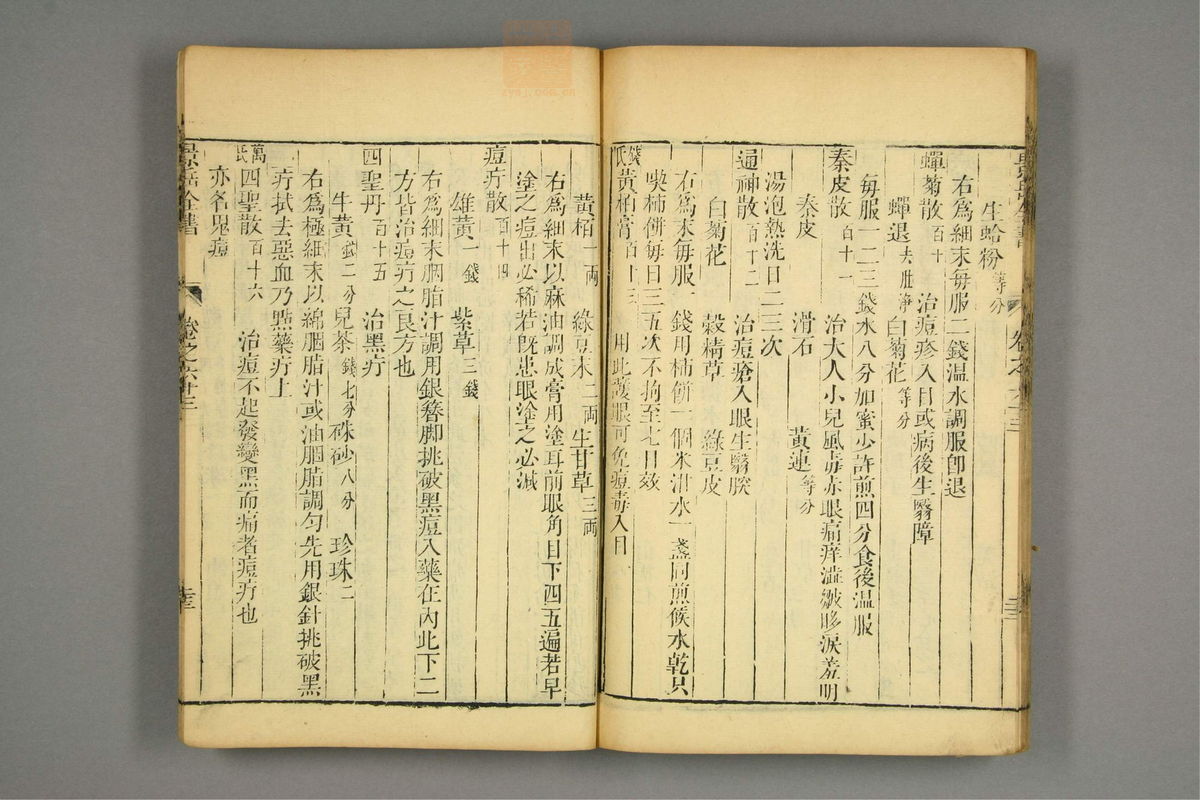 生蛤粉等分
右爲細末每服二錢温水調服卽退
蟬菊散百十 治痘疹入目或病後生翳障
蟬退去泄淨 白菊花等分
每服一二三錢水八分加蜜少許煎四分食後温服
秦皮散百十一 治大人小兒風毒赤眼痛痒澁皺眵淚羞明
秦皮 滑石 黃連等分
湯泡熱洗日二三次
通神散百十二 治痘瘡入眼生翳膜
白菊花 穀精草 綠豆皮
右爲末每服一錢用柿餅一個米泔水一盞同煎候水乾只
喫柿餅每日三五次不拘至七日效
錢氏黃柏膏百十三 用此護眼可免痘毒入目
黃栢一兩 綠豆末二兩 生甘草三兩
右爲細末以麻油調成膏用塗耳前眼角目下四五遍若早
塗之痘出必稀若旣患眼塗之必減
痘疔散百十四
雄黃一錢 紫草三錢
右爲細末胭脂汁調用銀簪脚挑破黑痘入藥在內此下二
方皆治痘疔之良方也
四聖丹百十五 治黑疔
牛黃錢二分 兒茶錢七分 硃砂八分 珍珠二
右爲極細末以綿胭脂汁或油胭脂調勻先用銀針挑破黑
疔拭去惡血乃點藥疔上
萬氏四聖散百十六 治痘不起發變黑而痛者痘疔也
亦名鬼痘
景岳全書 卷之六十三